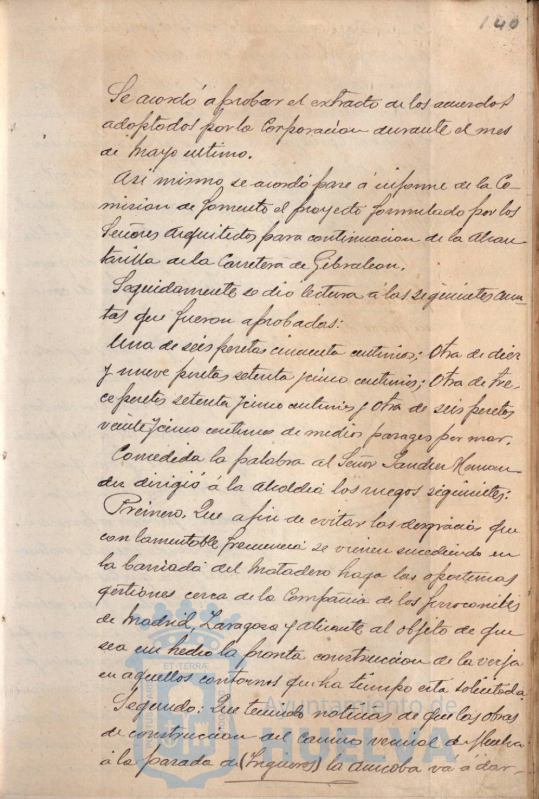 140
Se acordó aprobar el extracto de los acuerdos
adoptados por la Corporacion durante el mes
de Mayo ultimo.
Asi mismo se acordó pase á informe de la Co-
mision de fomento el proyecto formulado por los
Señores Arquitectos para continuacion de la Alcan-
tarilla de la Carretera de Gibraleon.
Seguidamente se dio lectura á las siguientes cuen-
tas que fueron aprobadas:
Una de seis pesetas cincuenta centimos; Otra de diez
y nueve pesetas setenta y cinco centimos; Otra de tre-
ce pesetas setenta y cinco centimos y otra de seis pesetas
veinte y cinco centimos de medios pasages por mar.
Concedida la palabra al Señor Sanchez Hernan-
dez dirigió á la alcaldia los ruegos siguientes:
Primero. Que a fin de evitar las desgracias que
con lamentable frecuencia se vienen sucediendo en
la barriada del Matadero haga las oportunas
gestiones cerca de la Compañia de los ferrocarriles
de Madrid, Zaragoza y Alicante al objeto de que
sea un hecho la pronta construccion de la verja
en aquellos contornos que ha tiempo está solicitada.
Segundo: Que teniendo noticias de que las obras
de construccion del camino vecinal de Huelva
á la parada de (Trigueros) la va á dar-
ET TERRAE
Ayuntamiento de
HUELVA